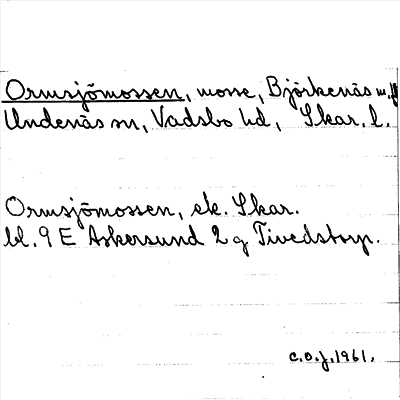 Ormsjömossen, mosse, Björkenäs m.fl.
Undenäs sn, Vadsbo hd, Skar. l.
Ormsjömossen, ek. Skar.
bl. 9 E Askersund 2 g Tivedstorp.
C.O.J. 1961.